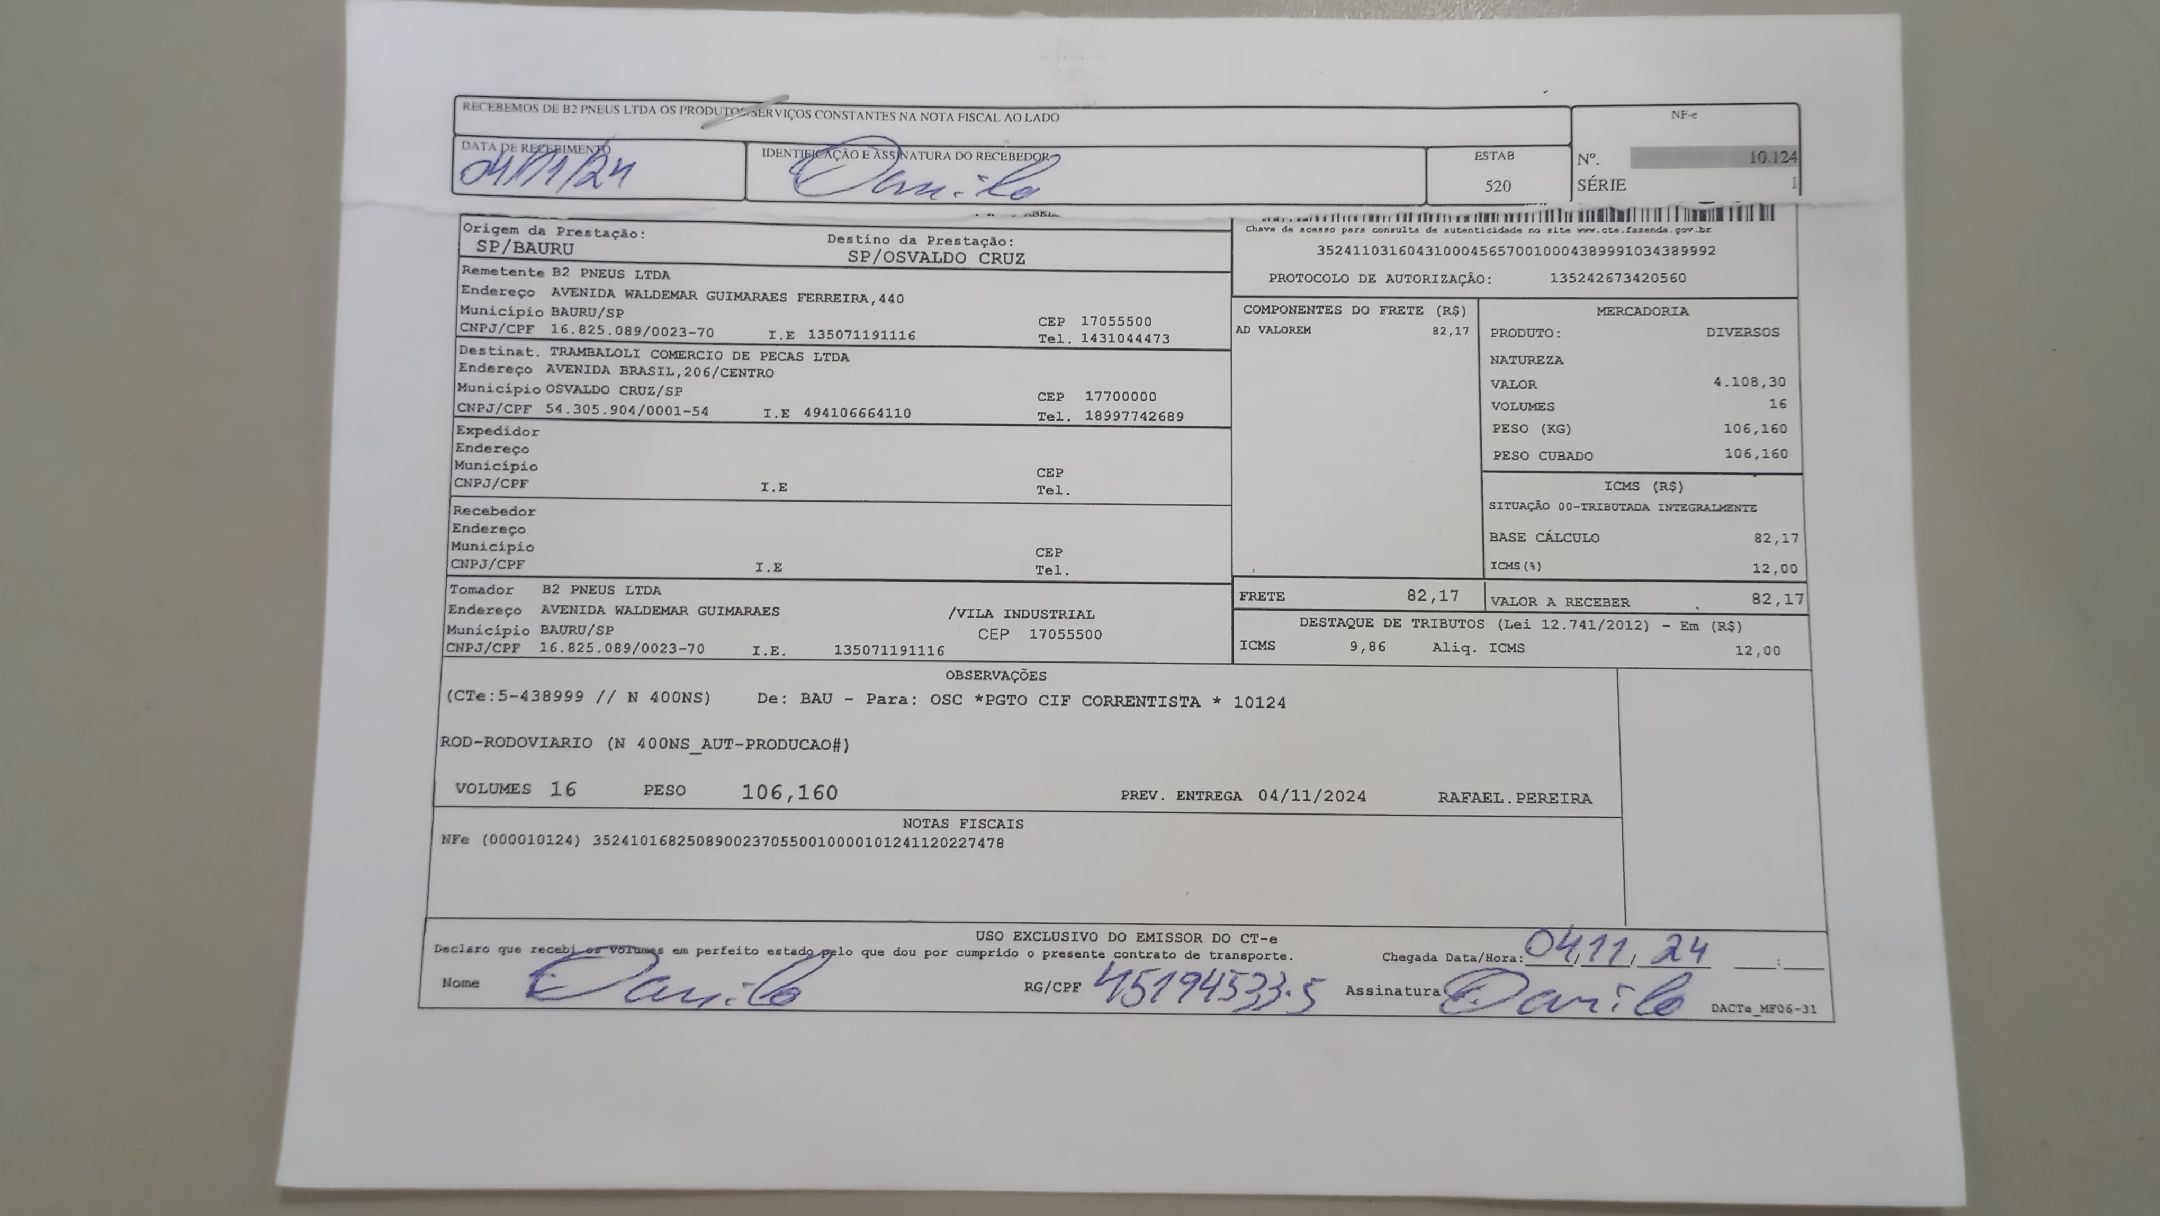 RECEBEMOS DE B2 PNEUS LTDA OS PRODUTOS SERVIÇOS CONSTANTES NA NOTA FISCAL AO LADO
NF-e
DATA DE RECEBIMENTO IDENTIFICAÇÃO E ASSINATURA DO RECEBEDOR ESTAB Nº. 10.124
04/11/24 Danilo 520 SÉRIE 1
Origem da Prestação: Destino da Prestação:
SP/BAURU SP/OSVALDO CRUZ
Chave de acesso para consulta de autenticidade no site www.cte.fazenda.gov.br
35241103160431000456570010004389991034389992
PROTOCOLO DE AUTORIZAÇÃO: 135242673420560
Remetente B2 PNEUS LTDA
Endereço AVENIDA WALDEMAR GUIMARAES FERREIRA,440
Município BAURU/SP CEP 17055500
CNPJ/CPF 16.825.089/0023-70 I.E 135071191116 Tel. 1431044473
Destinat. TRAMBALOLI COMERCIO DE PECAS LTDA
Endereço AVENIDA BRASIL,206/CENTRO
Município OSVALDO CRUZ/SP CEP 17700000
CNPJ/CPF 54.305.904/0001-54 I.E 494106664110 Tel. 18997742689
Expedidor
Endereço
Município CEP
CNPJ/CPF I.E Tel.
Recebedor
Endereço
Município CEP
CNPJ/CPF I.E Tel.
Tomador B2 PNEUS LTDA
Endereço AVENIDA WALDEMAR GUIMARAES /VILA INDUSTRIAL
Município BAURU/SP CEP 17055500
CNPJ/CPF 16.825.089/0023-70 I.E. 135071191116
COMPONENTES DO FRETE (R$)
AD VALOREM 82,17
MERCADORIA
PRODUTO: DIVERSOS
NATUREZA
VALOR 4.108,30
VOLUMES 16
PESO (KG) 106,160
PESO CUBADO 106,160
ICMS (R$)
SITUAÇÃO 00-TRIBUTADA INTEGRALMENTE
BASE CÁLCULO 82,17
ICMS(%) 12,00
FRETE 82,17 VALOR A RECEBER 82,17
DESTAQUE DE TRIBUTOS (Lei 12.741/2012) - Em (R$)
ICMS 9,86 Aliq. ICMS 12,00
OBSERVAÇÕES
(CTe:5-438999 // N 400NS) De: BAU - Para: OSC *PGTO CIF CORRENTISTA * 10124
ROD-RODOVIARIO (N 400NS_AUT-PRODUCAO#)
VOLUMES 16 PESO 106,160 PREV. ENTREGA 04/11/2024 RAFAEL.PEREIRA
NOTAS FISCAIS
NFe (000010124) 35241016825089002370550010000101241120227478
USO EXCLUSIVO DO EMISSOR DO CT-e
Declaro que recebi os volumes em perfeito estado pelo que dou por cumprido o presente contrato de transporte. Chegada Data/Hora: 04,11, 24 :
Nome Danilo RG/CPF 45194533-5 Assinatura Danilo DACTe_MF06-31